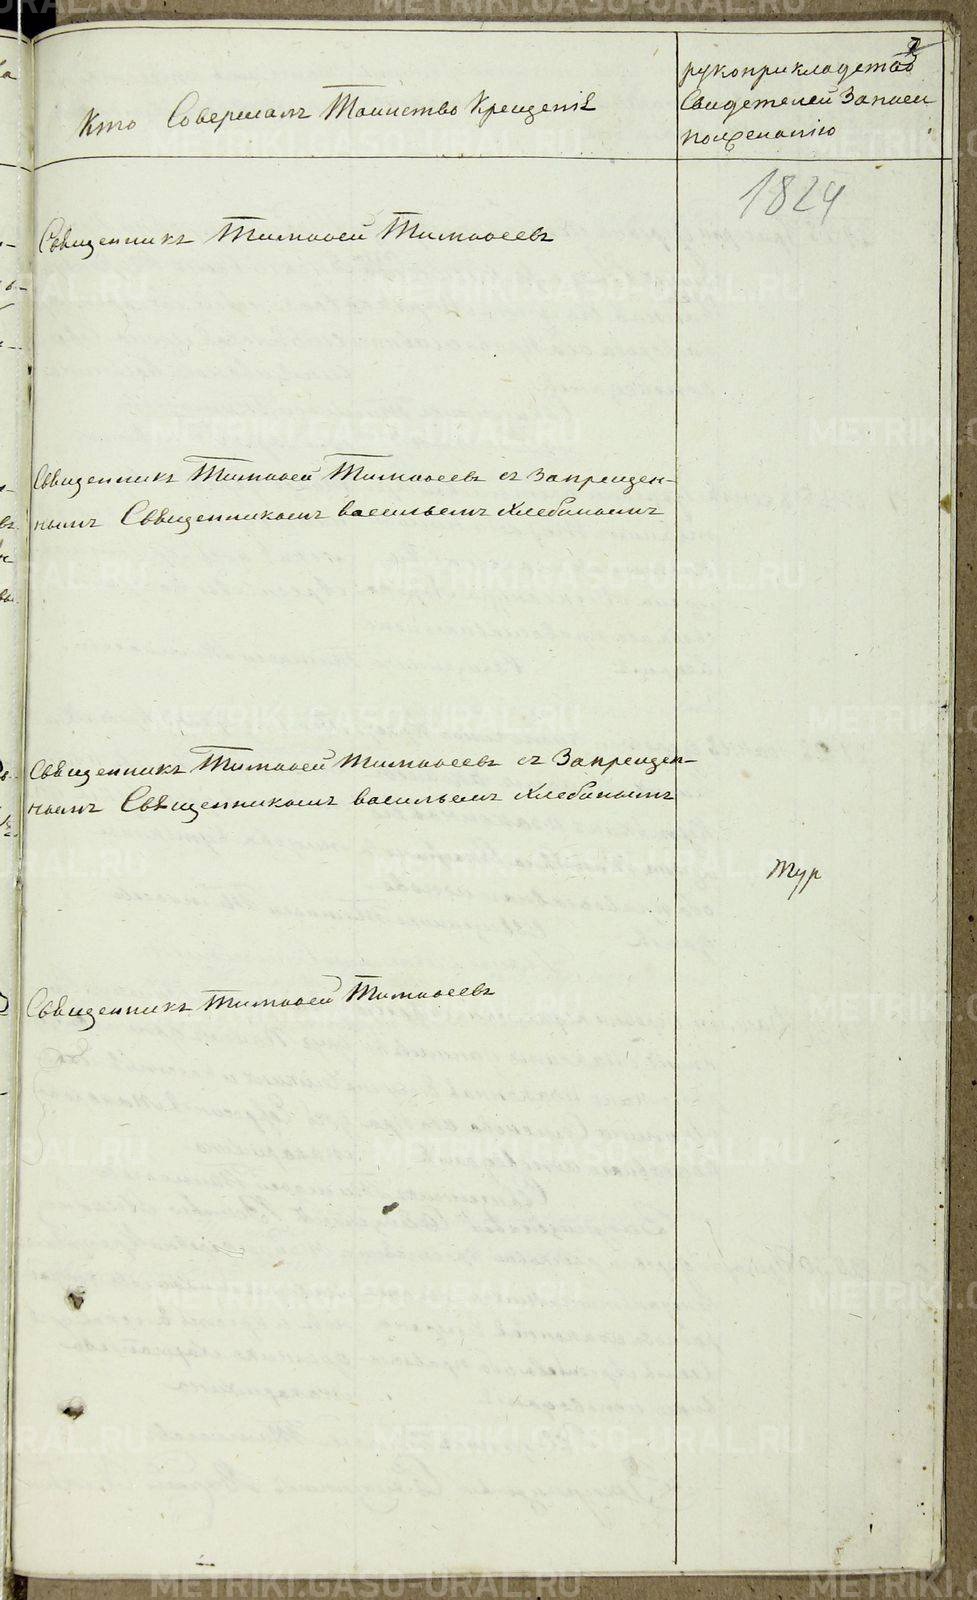 Кто Совершалъ Таинство Крещенія
рукоприкладство
Свидетелей Записи
пожеланію
1824
Священникъ Тимофей Тимофеевъ
Священникъ Тимофей Тимофеевъ съ Запрещен-
нымъ Священникомъ васильемъ Хлебинымъ
Священникъ Тимофей Тимофеевъ съ Запрещен-
нымъ Священникомъ васильемъ Хлебинымъ
тур
Священникъ Тимофей Тимофеевъ
METRIKI.GASO-URAL.RU